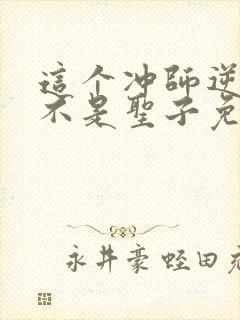 這个冲師逆
不是聖子兔
永井豪蛭田充